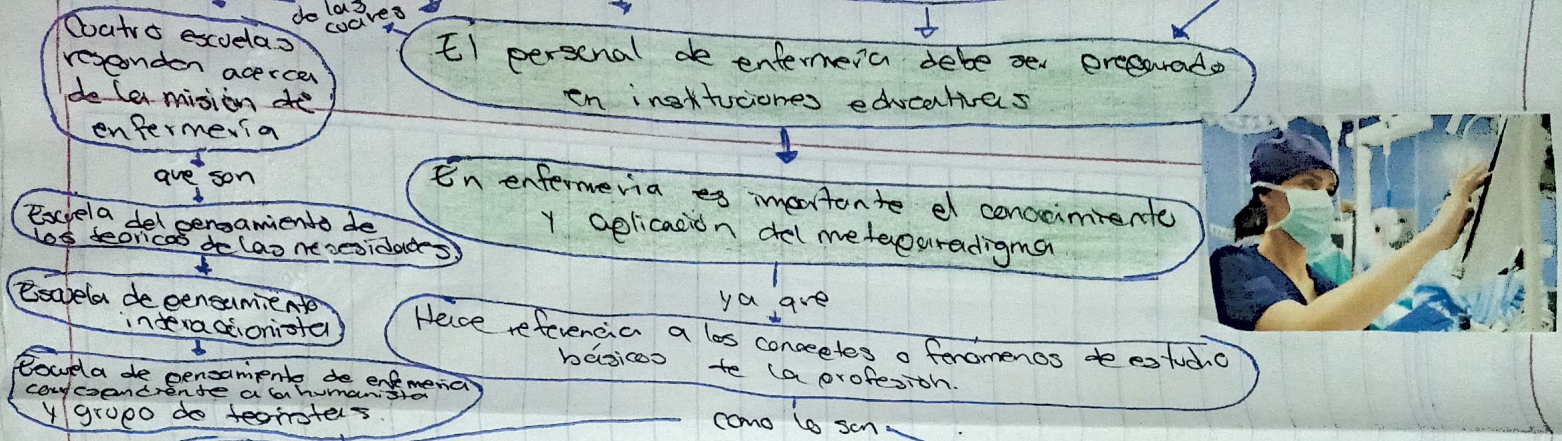 de las
cuales
Cuatro escuelas
responden acerca
de la misión de
enfermería
que son
Escuela del pensamiento de
los teoricos de las necesidades
Escuela de pensamiento
interaccionista
Escuela de pensamiento de enfermeria
correspondiente a la humanista
y grupo de teoristas.
El personal de enfermería debe ser preparado
en instituciones educativas
En enfermeria es importante el conocimiento
y aplicación del metaparadigma
ya que
Hace referencia a los conceptos o fenómenos de estudio
básicos de la profesión.
como lo son